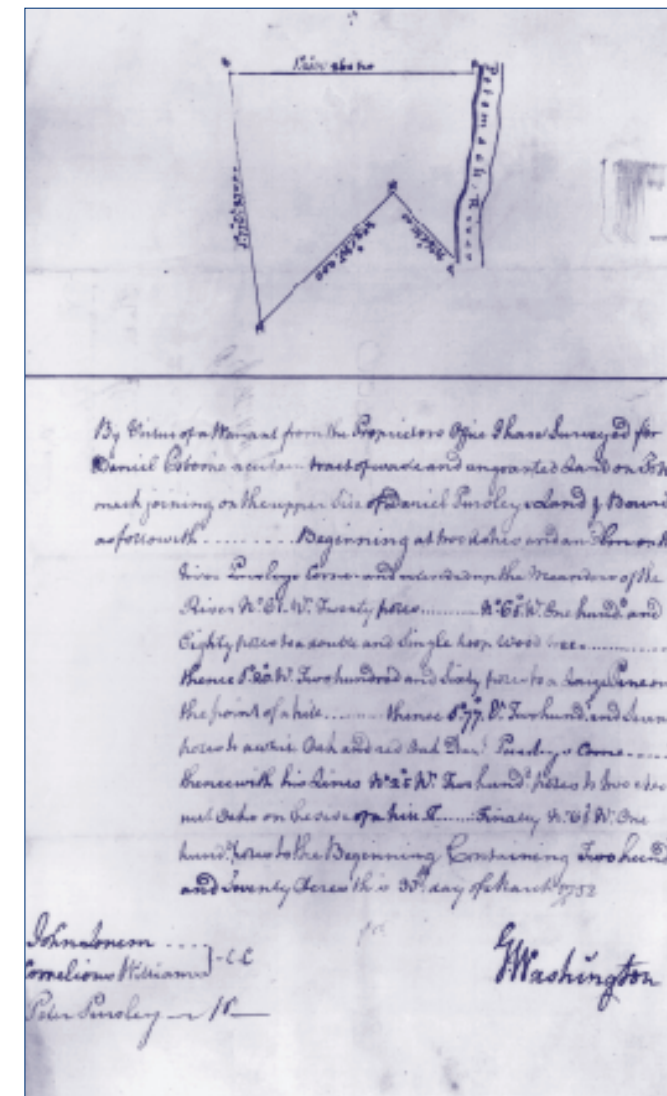 Potomack River
By Virtue of a Warrant from the Proprietors Office I have Surveyed for
Daniel Osborne a certain tract of waste and ungranted Land on
joining on the upper side of Daniel Pursley's Land &
as followith .......... Beginning at two Ashes and an Elm on
River Pursleys Corner and up the Meanders of the
River No 61. Wt. Twenty poles .......... No 65. Wt. One hundd. and
Eighty poles to a double and Single hoop wood tree ..........
thence So 20 Wt. Two hundred and Sixty poles to a large Pine on
the point of a hill ........ thence So 77. Two hundd. and Seven
poles to a white Oak and red Oak Danl. Pursley's Corner ....
thence with his Lines No 25 Wt. Two hundd. poles to two
nut Oaks on the side of a hill ...... Finally No 61 Wt. One
hundd. poles to the Beginning Containing Two
and Seventy Acres this 30th. day of March 1752
John Lonem ....
Cornelious William }-CC
Peter Pursley
GWashington